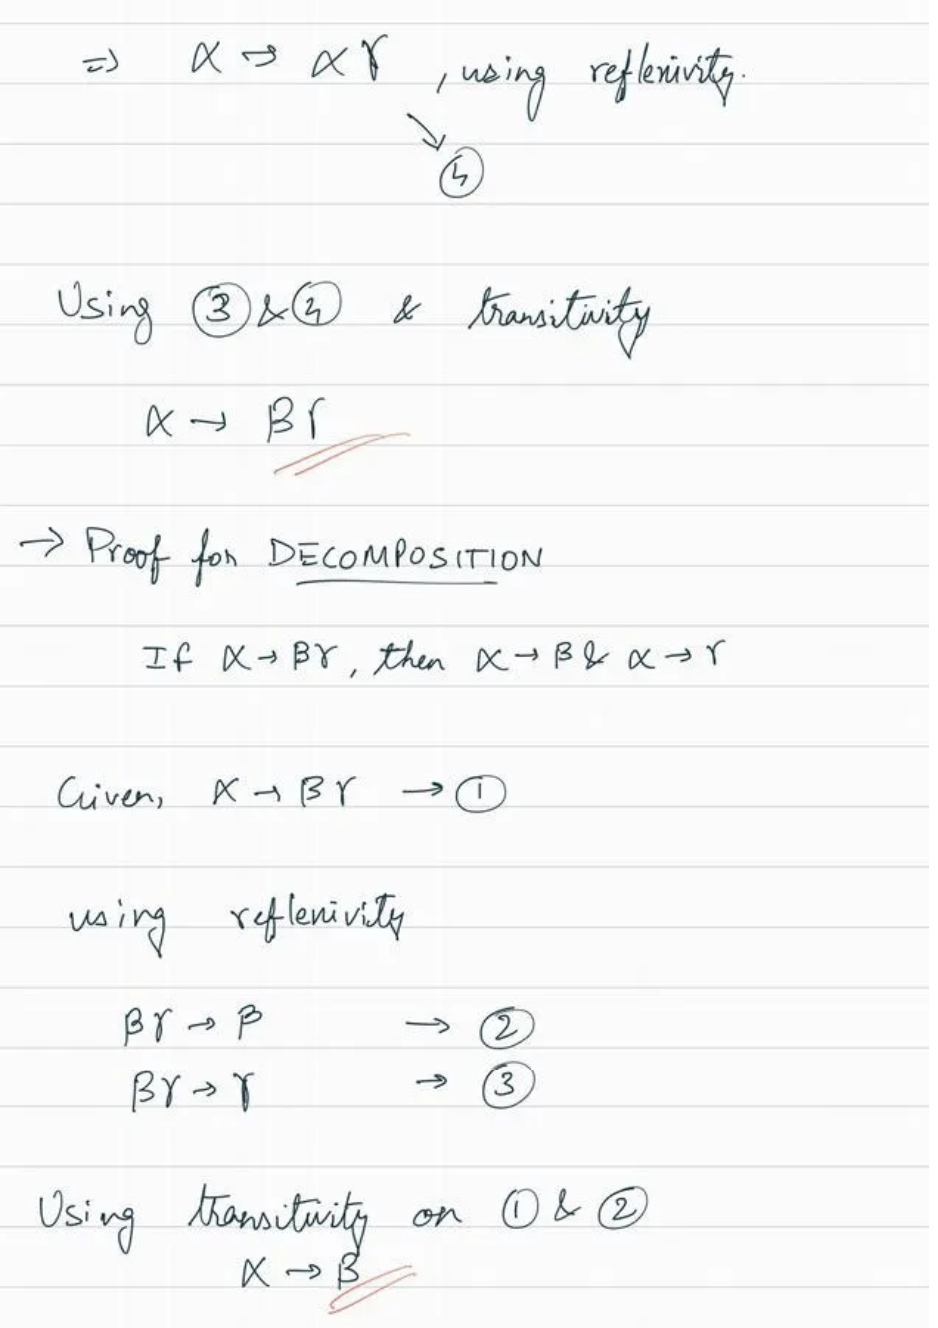 ⇒ α → αγ , using reflenivity.
↘
④
Using ③ & ④ & transitivity
α → βγ
→ Proof for DECOMPOSITION
If α → βγ, then α → β & α → γ
Given, α → βγ → ①
using reflenivity
βγ → β → ②
βγ → γ → ③
Using transitivity on ① & ②
α → β